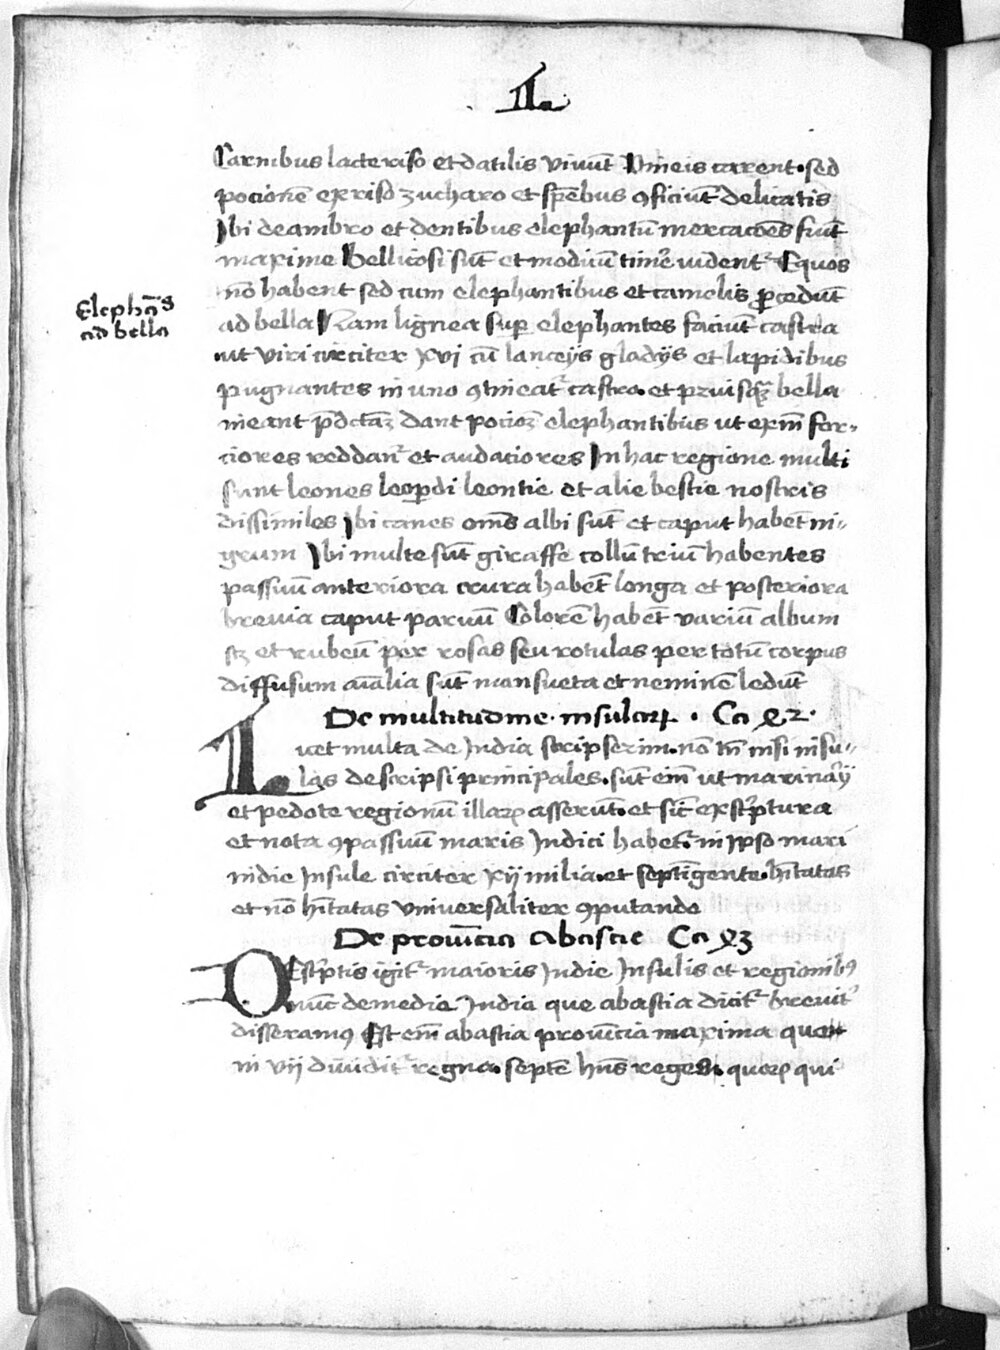 L
Carnibus lacte riso et datilis vivūt Vineis carent. sed
pocionē ex riso zucharo et sp̄ebus 9ficiūt delicatis
Ibi de ambro et dentibus elephantū mercacōēs fiūt
maxime Bellicosi sūt et modicū timẽ vident᷑ Equos
nō habent sed cum elephantibus et camelis ꝓcedūt
ad bella Nam lignea suꝑ elephantes faciūt castra
Elephātes
ad bella
ut viri circiter xvi cū lanceÿs gladÿs et lapidibus
pugnantes in uno 9tineāt᷑ castro. et priusqꝫ bella
ineant p̄dctāꝫ dant pocioꝫ elephantibus ut exīn for-
ciores reddant᷑ et audaciores In hac regione multi
sunt leones leoꝑdi leontie et alie bestie nostris
dissimiles Ibi canes om̄s albi sūt et caput habēt ni-
grum Ibi multe sūt giraffe collū triū habentes
passuū anteriora crura habēt longa et posteriora
brevia caput parvū Colorē habēt variū album
sꝫ et rubeū per rosas seu rotulas per totū corpus
diffusum aīalia sūt mansueta et neminē ledūt
De multitudine. insulaꝝ. Ca 42.
Licet multa de India scripserim. nō tn̄ nisi insu-
las descripsi principales. sūt em̄ ut marinarÿ
et pedote regionū illaꝝ asserūt. et sic̄ ex sc̄ptura
et nota 9passuū maris Indici habet᷑. in ipso mari
indie Insule circiter xÿ milia. et septīgente. hītatas
et nō hītatas Vniversaliter 9putande
De provīcia Abascie Ca 43
Desc̄ptis igit᷑ maioris Indie Insulis et regionib9
nūc de media India que abastia dicit᷑ brevit᷑
disseram9 Est em̄ abastia provīcia maxima que
in vii dividit᷑ regna. septē hn̄s reges. quoꝝ qui